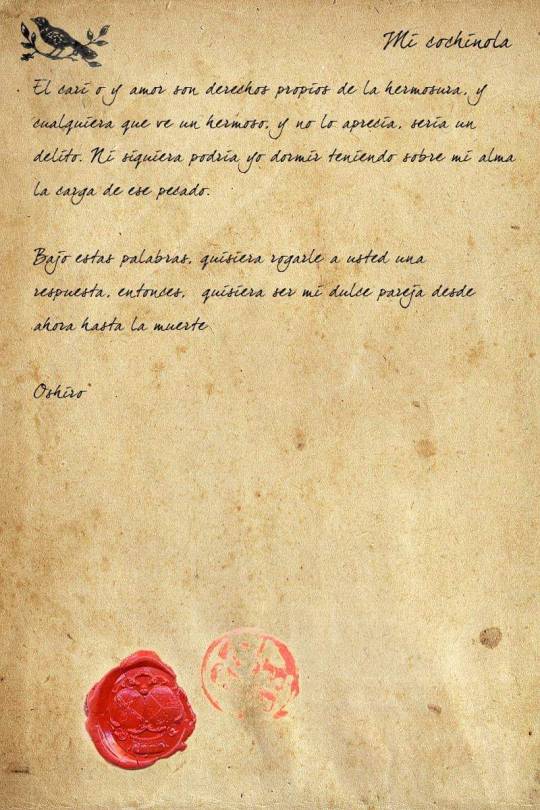 Mi cochinola
El cari o y amor son derechos propios de la hermosura, y
cualquiera que ve un hermoso, y no lo aprecia, seria un
delito. Ni siquiera podria yo dormir teniendo sobre mi alma
la carga de ese pecado.
Bajo estas palabras, quisiera rogarle a usted una
respuesta, entonces, quisiera ser mi dulce pareja desde
ahora hasta la muerte
Oshiro